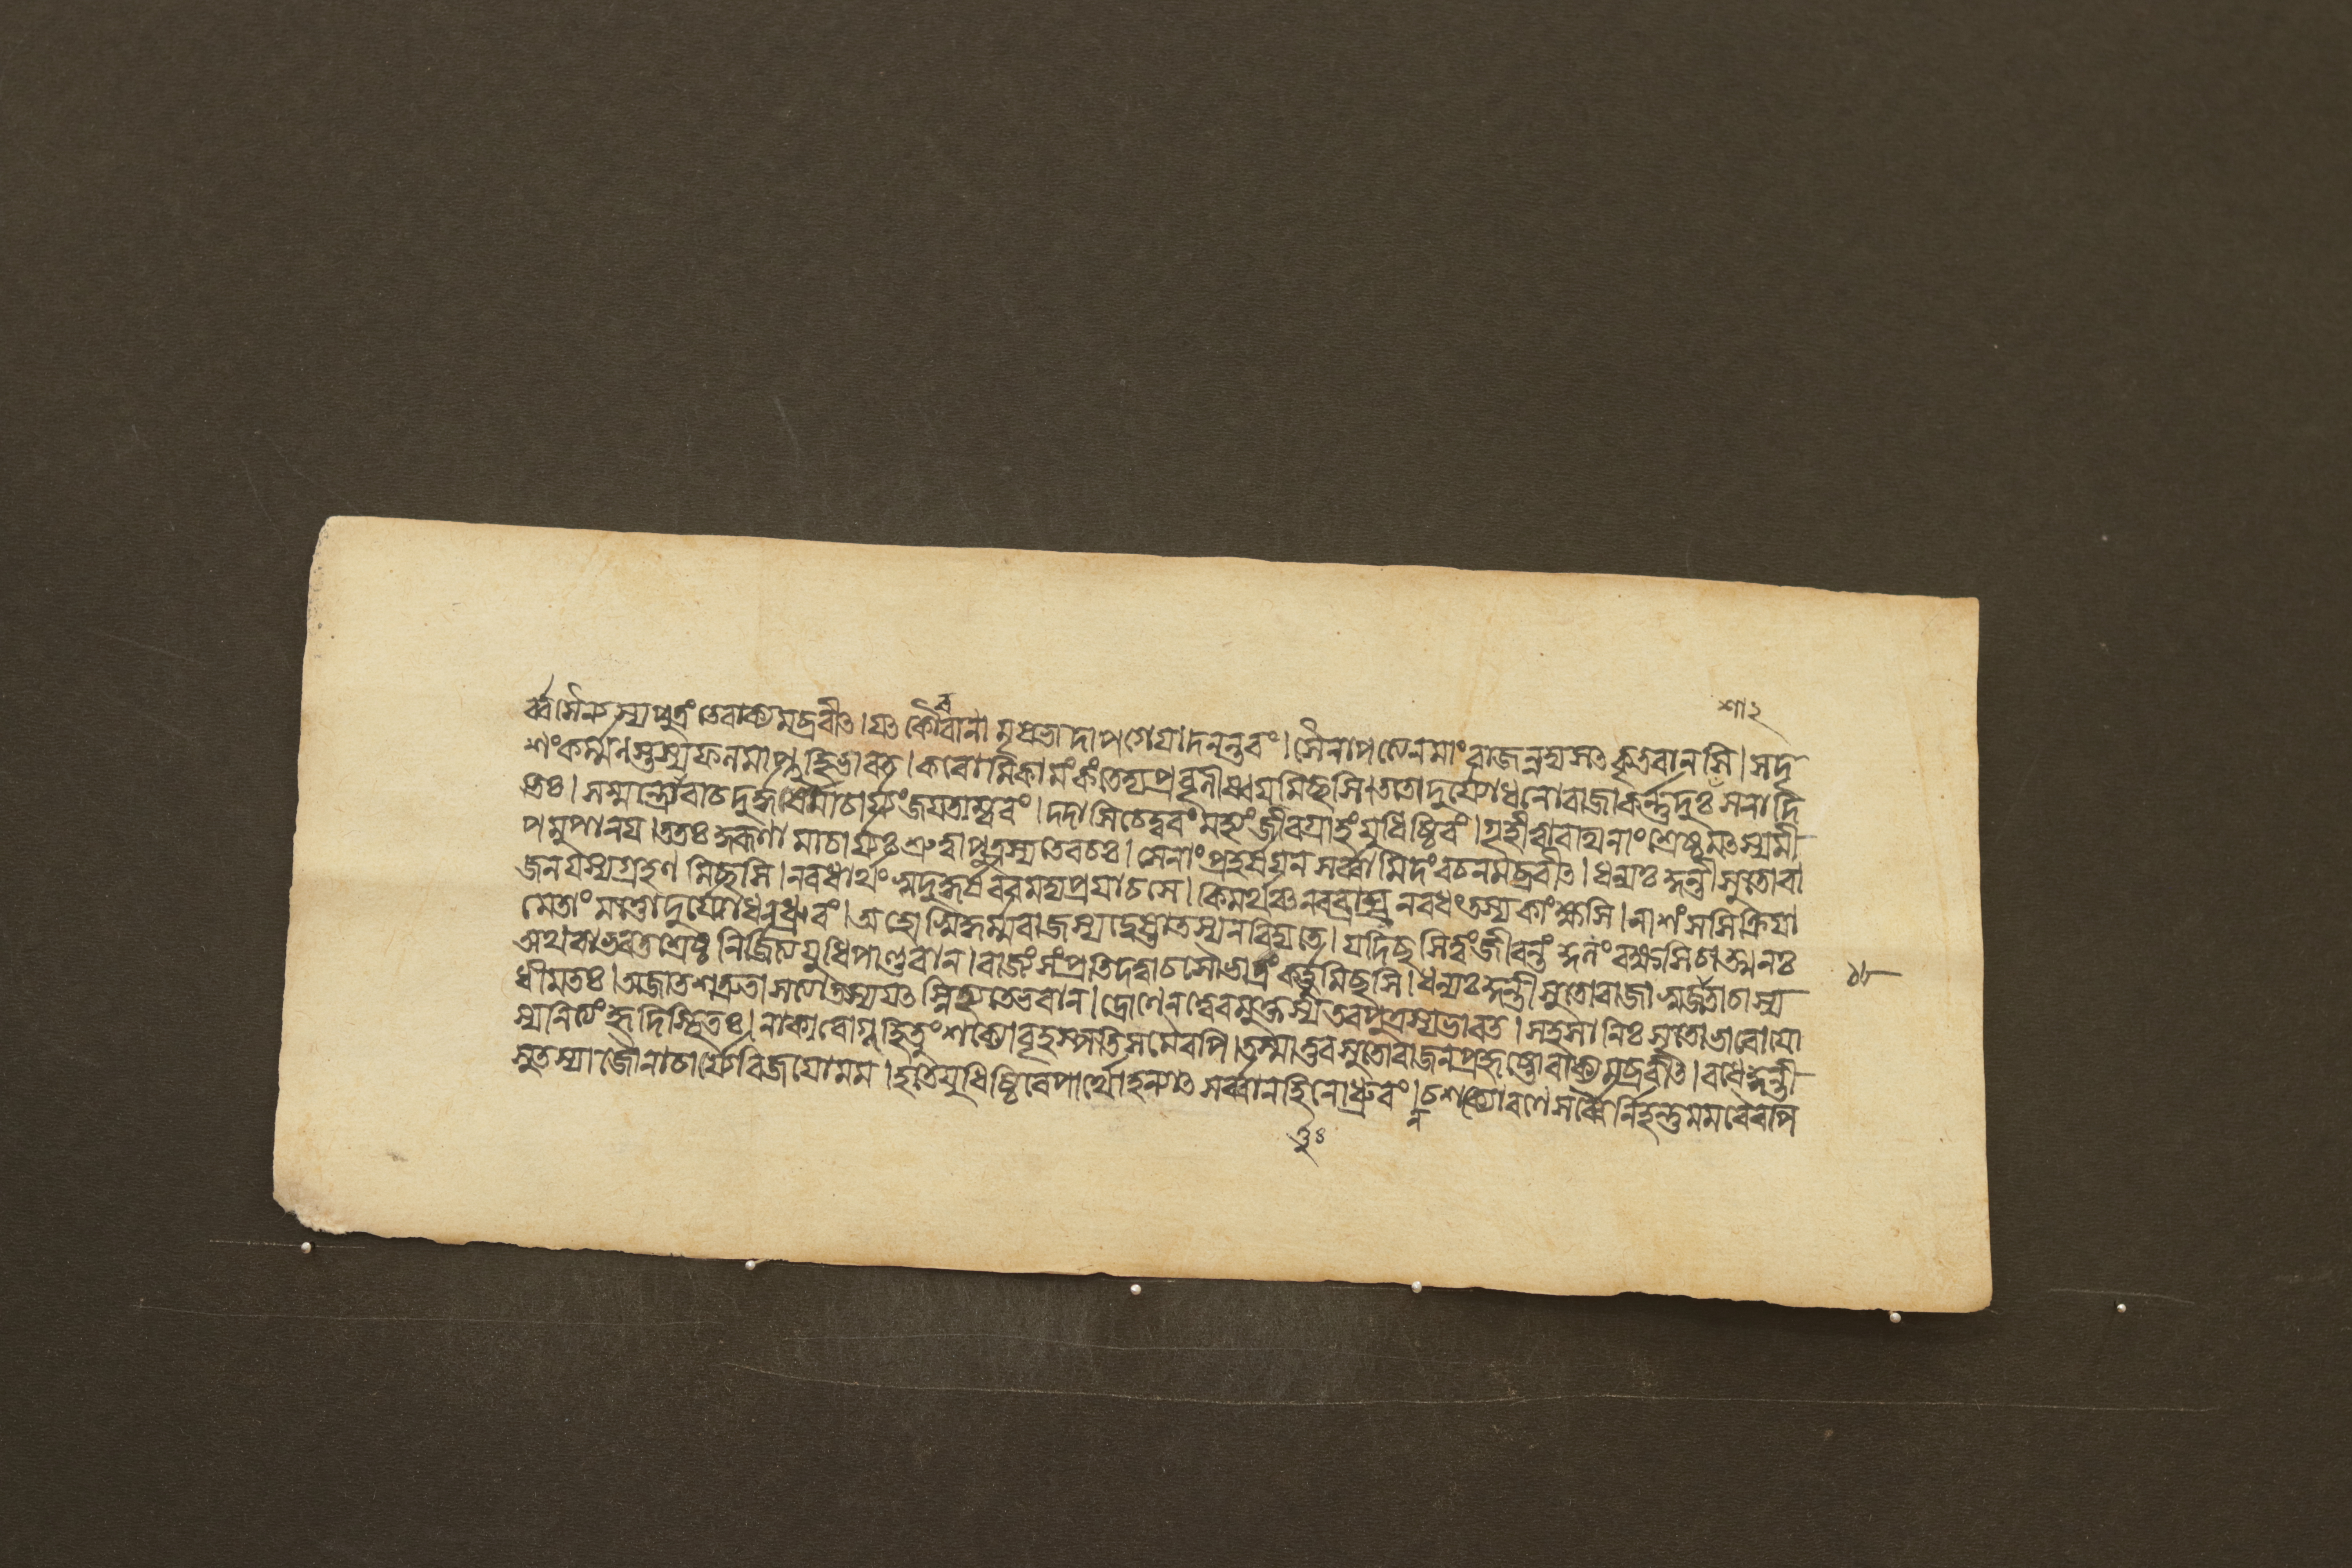 শ্রা২
র্ব্বসৈন্যস্য পুত্রং তে বাক্যমব্রবীৎ। যৎ কৌরবানামৃষভাদাপগেয়াদনন্তরং। সৈনাপত্যেন মাং রাজন্নদ্য সৎকৃতবানসি। সদৃ
শং কর্ম্মনস্তস্য ফলমাপ্নুহি ভারত। করোমি কামং কং তেদ্য প্রবৃনীষ্ব যমিচ্ছসি। ততো দুর্য্যোধনো রাজা কর্ন্নদুঃসনাদি
ভিঃ। সম্মন্ত্র্যোবাচ দুর্দ্ধর্ষমাচার্য্যং জয়তাম্বরং। দদাসি চেদ্বরং মহ্যং জীবগ্রাহং যুধিষ্ঠিরং। গৃহীত্বা রথিনাং শ্রেষ্ঠ মৎসমী
পমুপানয়। ততঃ কুরূণামাচার্য্যঃ শ্রুত্বা পুত্রস্য তে বচঃ। সেনাং প্রহর্ষয়ন সর্ব্বামিদং বচনমব্রবীৎ। ধন্যঃ কুন্তীসুতো রা
জন যস্য গ্রহণমিচ্ছসি। ন বধার্থং সুদুর্দ্ধর্ষ বরমদ্য প্রযাচসে। কিমর্থঞ্চ নরব্যাঘ্র ন বধং তস্য কাংক্ষসি। নাশংসসি ক্রিয়া
মেতাং মত্তো দুর্য্যোধন ধ্রুবং। আহোস্বিদ্ধর্ম্মরাজস্য দ্বেষ্টা তস্য ন বিদ্যতে। যদিচ্ছসি ত্বং জীবন্তং কুলং রক্ষসি চাত্মনঃ
অথবা ভরতশ্রেষ্ঠ নির্জ্জিত্য যুধি পাণ্ডবান। রাজ্যং সংপ্রতি দত্বা চ সৌভ্রাত্রং কর্ত্তুমিচ্ছসি। ধন্যঃ কুন্তীসুতো রাজা সুজাতা চাস্য
ধীমতঃ। অজাতশত্রুতা সত্যা তস্য যৎ স্নিহ্যতে ভবান। দ্রোণেন ত্বেবমুক্তস্য তব পুত্রস্য ভারত। সহসা নিঃসৃতো ভাবো যো
স্য নিত্যং হৃদি স্থিতঃ। নাকারো গূহিতুং শক্যো বৃহস্পতিসমৈরপি। তস্মাত্তব সুতো রাজন প্রহৃষ্টো বাক্যমব্রবীৎ। বধে কুন্তী
সুতস্যাজৌ নাচার্য্য বিজয়ো মম। হতে যুধিষ্ঠিরে পার্থো হন্যাৎ সর্ব্বান হি নো ধ্রুবং। ন চ শক্যো রণে সর্ব্বৈর্নিহন্তুমমরৈরপি
১৮